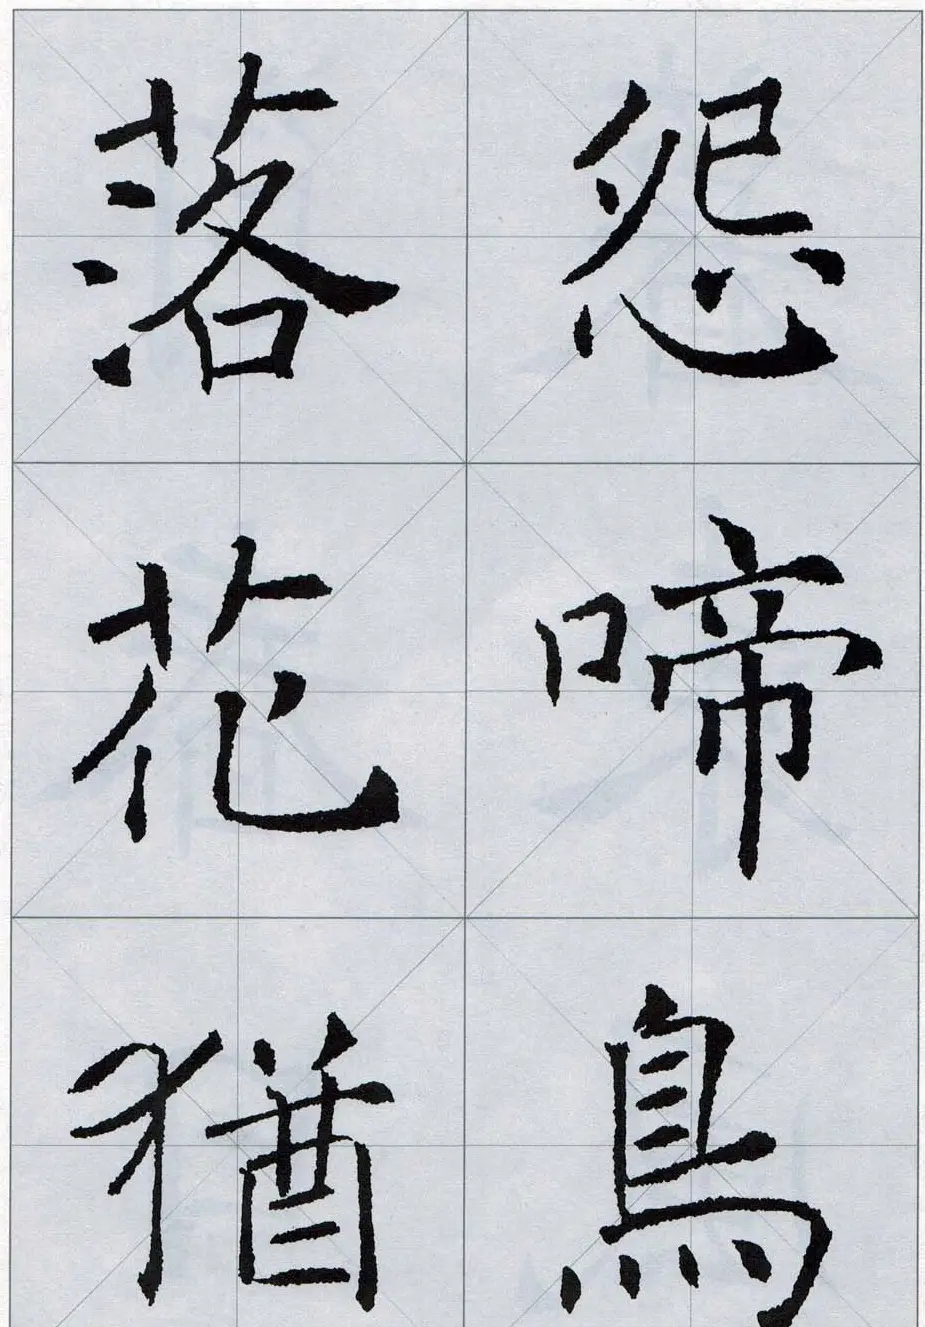 怨啼鳥
落花猶